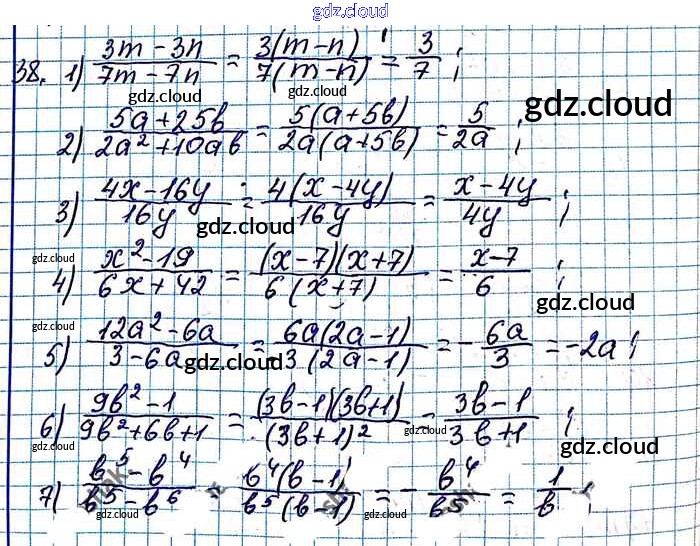 gdz.cloud
38. 1) (3m − 3n)/(7m − 7n) = 3(m − n)/7(m − n) = 3/7 ;
gdz.cloud
gdz.cloud
2) (5a + 25b)/(2a² + 10ab) = 5(a + 5b)/2a(a + 5b) = 5/2a ;
3) (4x − 16y)/16y = 4(x − 4y)/16y = (x − 4y)/4y ;
gdz.cloud
gdz.cloud
4) (x² − 19)/(6x + 42) = (x − 7)(x + 7)/6(x + 7) = (x − 7)/6 ;
gdz.cloud
gdz.cloud
5) (12a² − 6a)/(3 − 6a) = 6a(2a − 1)/−3(2a − 1) = −6a/3 = −2a ;
gdz.cloud
gdz.cloud
6) (9b² − 1)/(9b² + 6b + 1) = (3b − 1)(3b + 1)/(3b + 1)² = (3b − 1)/(3b + 1) ;
gdz.cloud
gdz.cloud
gdz.cloud
7) (b⁵ − b⁴)/(b⁵ − b⁶) = b⁴(b − 1)/b⁵(b − 1) = −b⁴/b⁵ = 1/b ;
gdz.cloud
gdz.cloud